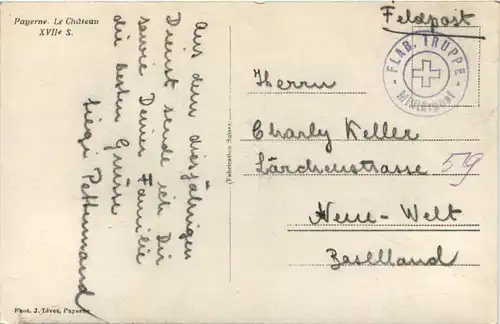 Payerne. Le Château
XVIIe S.
Aus dem diesjährigen
Dienst sende ich Dir
sowie Deiner Familie
die besten Grüsse
(Fabrication Suisse)
Feldpost
FLAB. TRUPPE
Herrn
Charly Keller
Lärchenstrasse 59
Neue-Welt
Baselland
Phot. J. Livet, Payerne